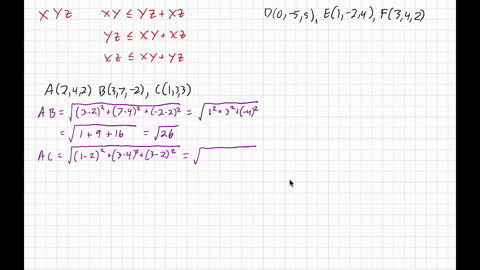 XYZ XY ≤ YZ + XZ
YZ ≤ XY + XZ
XZ ≤ XY + YZ
D(0,-5,5), E(1,-2,4), F(3,4,2)
A(2,4,2) B(3,7,-2), C(1,3,3)
AB = √((3-2)²+(7-4)²+(-2-2)²) = √(1²+3²+(-4)²)
= √(1+9+16) = √26
AC = √((1-2)²+(3-4)²+(3-2)²) = √